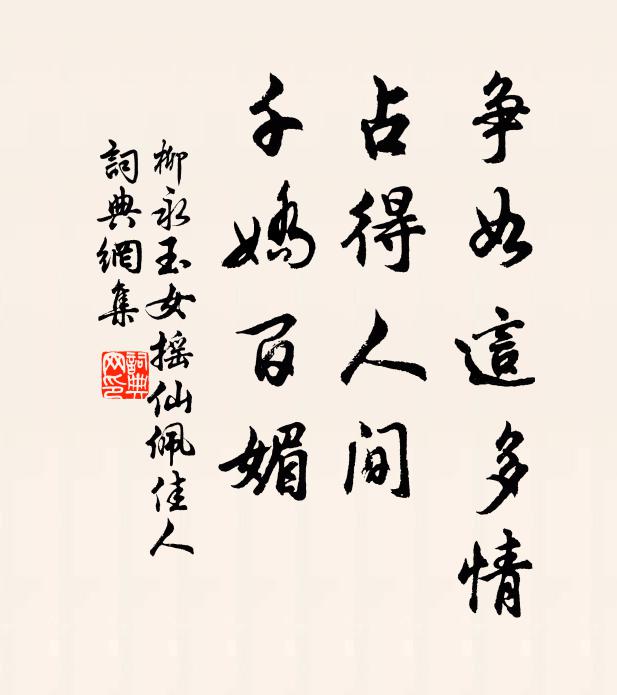 争如這多情
占得人间
千嬌百媚
柳永玉女摇仙佩佳人
詞典網集
詞典网印